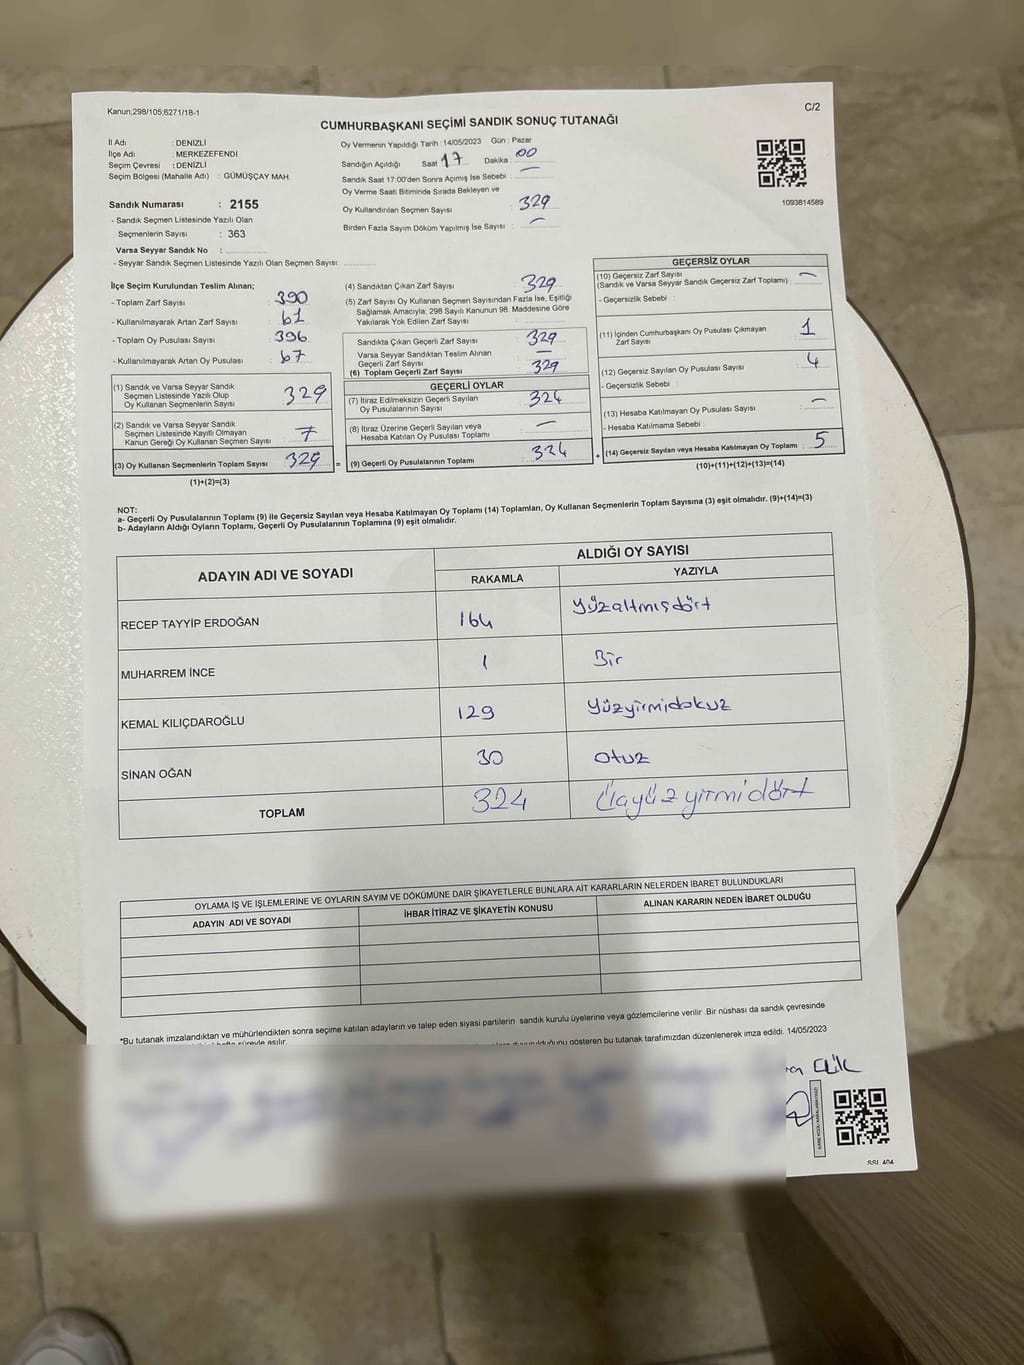 Kanun;298/105;6271/18-1
C/2
CUMHURBAŞKANI SEÇİMİ SANDIK SONUÇ TUTANAĞI
İl Adı : DENİZLİ
İlçe Adı : MERKEZEFENDİ
Seçim Çevresi : DENİZLİ
Seçim Bölgesi (Mahalle Adı) : GÜMÜŞÇAY MAH.
Sandık Numarası : 2155
- Sandık Seçmen Listesinde Yazılı Olan
Seçmenlerin Sayısı : 363
Varsa Seyyar Sandık No :
- Seyyar Sandık Seçmen Listesinde Yazılı Olan Seçmen Sayısı:
Oy Vermenin Yapıldığı Tarih : 14/05/2023 Gün : Pazar
Sandığın Açıldığı Saat 17 Dakika 00
Sandık Saat 17:00'den Sonra Açımış İse Sebebi : —
Oy Verme Saati Bitiminde Sırada Bekleyen ve
Oy Kullandırılan Seçmen Sayısı : 329
Birden Fazla Sayım Döküm Yapılmış İse Sayısı : —
1093814589
İlçe Seçim Kurulundan Teslim Alınan;
- Toplam Zarf Sayısı : 390
- Kullanılmayarak Artan Zarf Sayısı : 61
- Toplam Oy Pusulası Sayısı : 396
- Kullanılmayarak Artan Oy Pusulası : 67
(1) Sandık ve Varsa Seyyar Sandık
Seçmen Listesinde Yazılı Olup
Oy Kullanan Seçmenlerin Sayısı 329
(2) Sandık ve Varsa Seyyar Sandık
Seçmen Listesinde Kayıtlı Olmayan
Kanun Gereği Oy Kullanan Seçmen Sayısı
(3) Oy Kullanan Seçmenlerin Toplam Sayısı : 329 =
(1)+(2)=(3)
(4) Sandıktan Çıkan Zarf Sayısı : 329
(5) Zarf Sayısı Oy Kullanan Seçmen Sayısından Fazla İse, Eşitliği
Sağlamak Amacıyla, 298 Sayılı Kanunun 98. Maddesine Göre
Yakılarak Yok Edilen Zarf Sayısı :
Sandıkta Çıkan Geçerli Zarf Sayısı : 329
Varsa Seyyar Sandıktan Teslim Alınan
Geçerli Zarf Sayısı : —
(6) Toplam Geçerli Zarf Sayısı : 329
GEÇERLİ OYLAR
(7) İtiraz Edilmeksizin Geçerli Sayılan
Oy Pusulalarının Sayısı : 324
(8) İtiraz Üzerine Geçerli Sayılan veya
Hesaba Katılan Oy Pusulası Toplamı : —
(9) Geçerli Oy Pusulalarının Toplamı : 324 +
GEÇERSİZ OYLAR
(10) Geçersiz Zarf Sayısı
(Sandık ve Varsa Seyyar Sandık Geçersiz Zarf Toplamı) : —
- Geçersizlik Sebebi :
(11) İçinden Cumhurbaşkanı Oy Pusulası Çıkmayan
Zarf Sayısı : 1
(12) Geçersiz Sayılan Oy Pusulası Sayısı : 4
- Geçersizlik Sebebi :
(13) Hesaba Katılmayan Oy Pusulası Sayısı : —
- Hesaba Katılmama Sebebi :
(14) Geçersiz Sayılan veya Hesaba Katılmayan Oy Toplamı : 5
(10)+(11)+(12)+(13)=(14)
NOT:
a- Geçerli Oy Pusulalarının Toplamı (9) ile Geçersiz Sayılan veya Hesaba Katılmayan Oy Toplamı (14) Toplamları, Oy Kullanan Seçmenlerin Toplam Sayısına (3) eşit olmalıdır. (9)+(14)=(3)
b- Adayların Aldığı Oyların Toplamı, Geçerli Oy Pusulalarının Toplamına (9) eşit olmalıdır.
ADAYIN ADI VE SOYADI
ALDIĞI OY SAYISI
RAKAMLA YAZIYLA
RECEP TAYYİP ERDOĞAN 164 Yüzaltmışdört
MUHARREM İNCE 1 Bir
KEMAL KILIÇDAROĞLU 129 Yüzyirmidokuz
SİNAN OĞAN 30 Otuz
TOPLAM 324 Üçyüz yirmi dört
OYLAMA İŞ VE İŞLEMLERİNE VE OYLARIN SAYIM VE DÖKÜMÜNE DAİR ŞİKAYETLERLE BUNLARA AİT KARARLARIN NELERDEN İBARET BULUNDUKLARI
ADAYIN ADI VE SOYADI İHBAR İTİRAZ VE ŞİKAYETİN KONUSU ALINAN KARARIN NEDEN İBARET OLDUĞU
*Bu tutanak imzalandıktan ve mühürlendikten sonra seçime katılan adayların ve talep eden siyasi partilerin sandık kurulu üyelerine veya gözlemcilerine verilir .Bir nüshası da sandık çevresinde
hafta süreyle asılır.
gösteren bu tutanak tarafımızdan düzenlenerek imza edildi. 14/05/2023